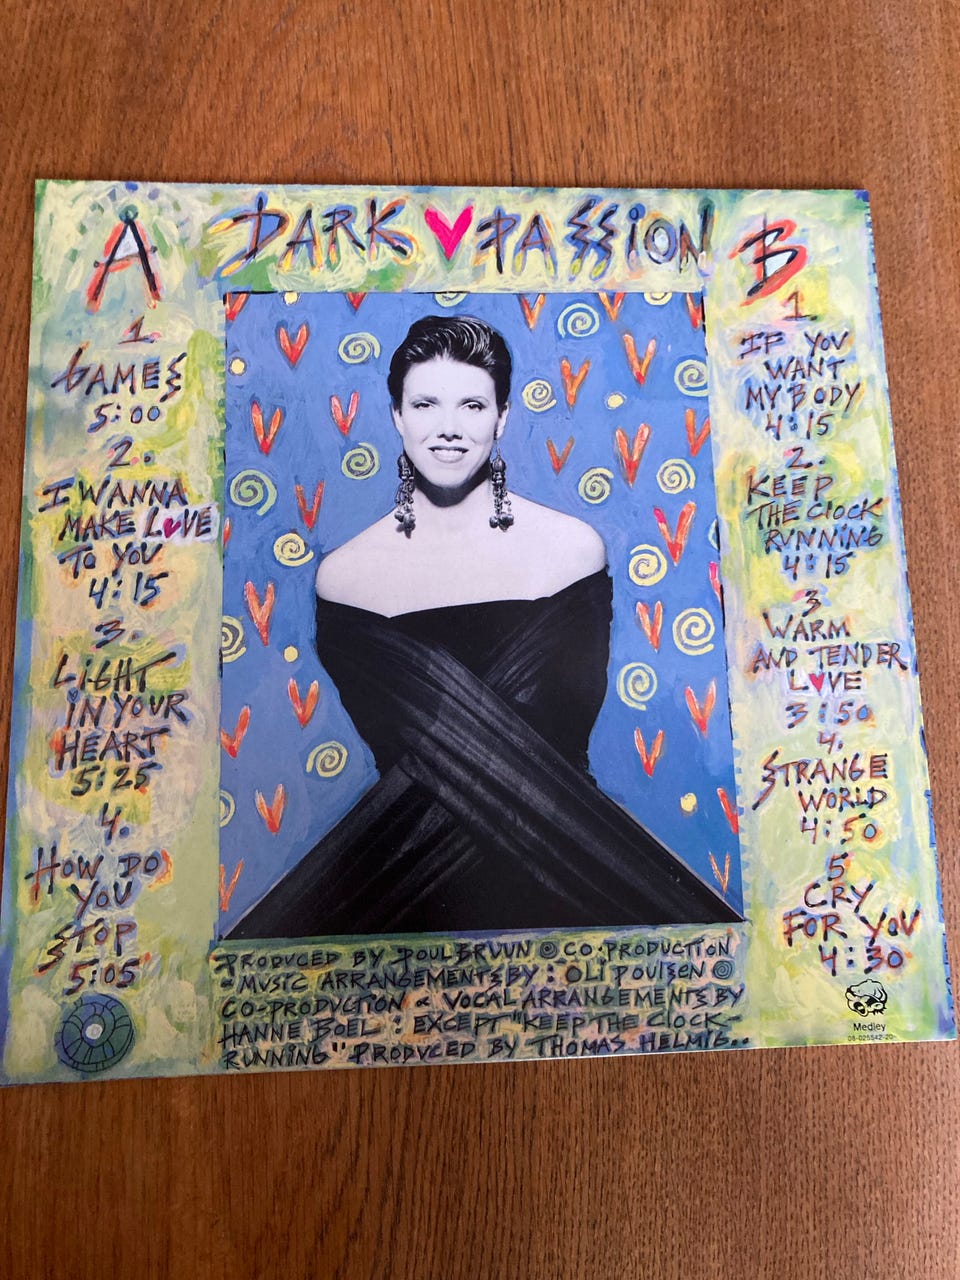 DARK PASSION
A
1.
GAMES
5:00
2.
I WANNA
MAKE LOVE
TO YOU
4:15
3.
LIGHT
IN YOUR
HEART
5:25
4.
HOW DO
YOU
STOP
5:05
B
1
IF YOU
WANT
MY BODY
4:15
2.
KEEP
THE CLOCK
RUNNING
4:15
3
WARM
AND TENDER
LOVE
3:50
4.
STRANGE
WORLD
4:50
5
CRY
FOR YOU
4:30
PRODUCED BY POUL BRUUN CO-PRODUCTION
MUSIC ARRANGEMENTS BY: OLI POULSEN
CO-PRODUCTION & VOCAL ARRANGEMENTS BY
HANNE BOEL : EXCEPT "KEEP THE CLOCK-
RUNNING" PRODUCED BY THOMAS HELMIG..
Medley